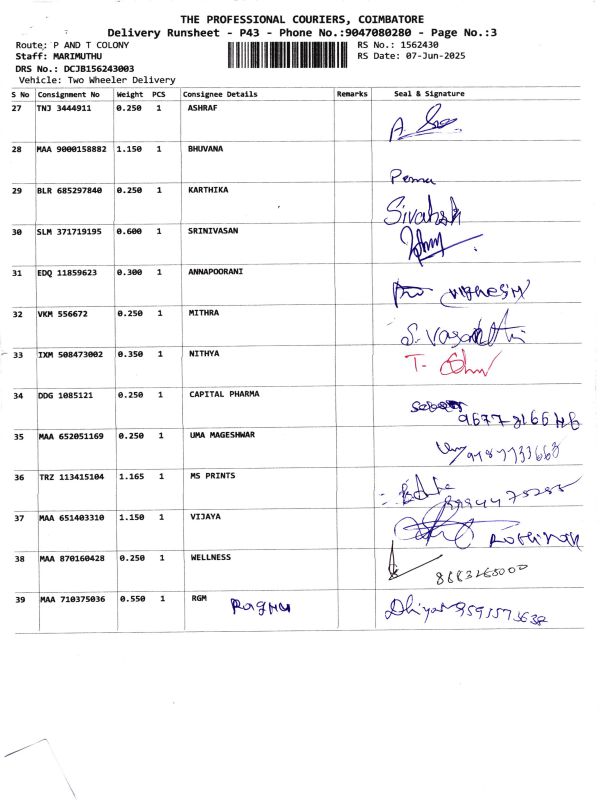 THE PROFESSIONAL COURIERS, COIMBATORE
Delivery Runsheet - P43 - Phone No.:9047080280 - Page No.:3
Route: P AND T COLONY RS No.: 1562430
Staff: MARIMUTHU RS Date: 07-Jun-2025
DRS No.: DCJB156243003
Vehicle: Two Wheeler Delivery
S No Consignment No Weight PCS Consignee Details Remarks Seal & Signature
27 TNJ 3444911 0.250 1 ASHRAF
28 MAA 9000158882 1.150 1 BHUVANA
29 BLR 685297840 0.250 1 KARTHIKA
30 SLM 371719195 0.600 1 SRINIVASAN
31 EDQ 11859623 0.300 1 ANNAPOORANI
32 VKM 556672 0.250 1 MITHRA
33 IXM 508473002 0.350 1 NITHYA
34 DDG 1085121 0.250 1 CAPITAL PHARMA
35 MAA 652051169 0.250 1 UMA MAGESHWAR
36 TRZ 113415104 1.165 1 MS PRINTS
37 MAA 651403310 1.150 1 VIJAYA
38 MAA 870160428 0.250 1 WELLNESS
39 MAA 710375036 0.550 1 RGM Raghu